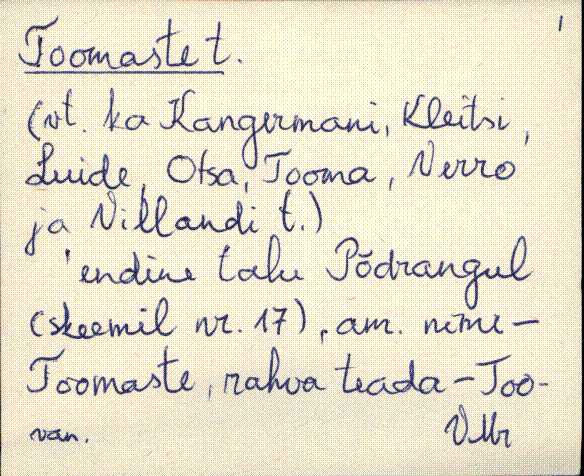 1
Toomaste t.
(vt. ka Kangermani, Kleitsi,
Luide, Otsa, Tooma, Verro
ja Villandi t.)
endine talu Põdrangul
(skeemil nr. 17), am. nimi –
Toomaste, rahva teada – Too-
van. VMr